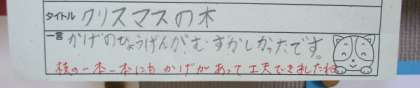 タイトル クリスマスの木
一言 かげのひょうげんがむずかしかったです。
枝の一本一本にも かげがあって工夫できましたね